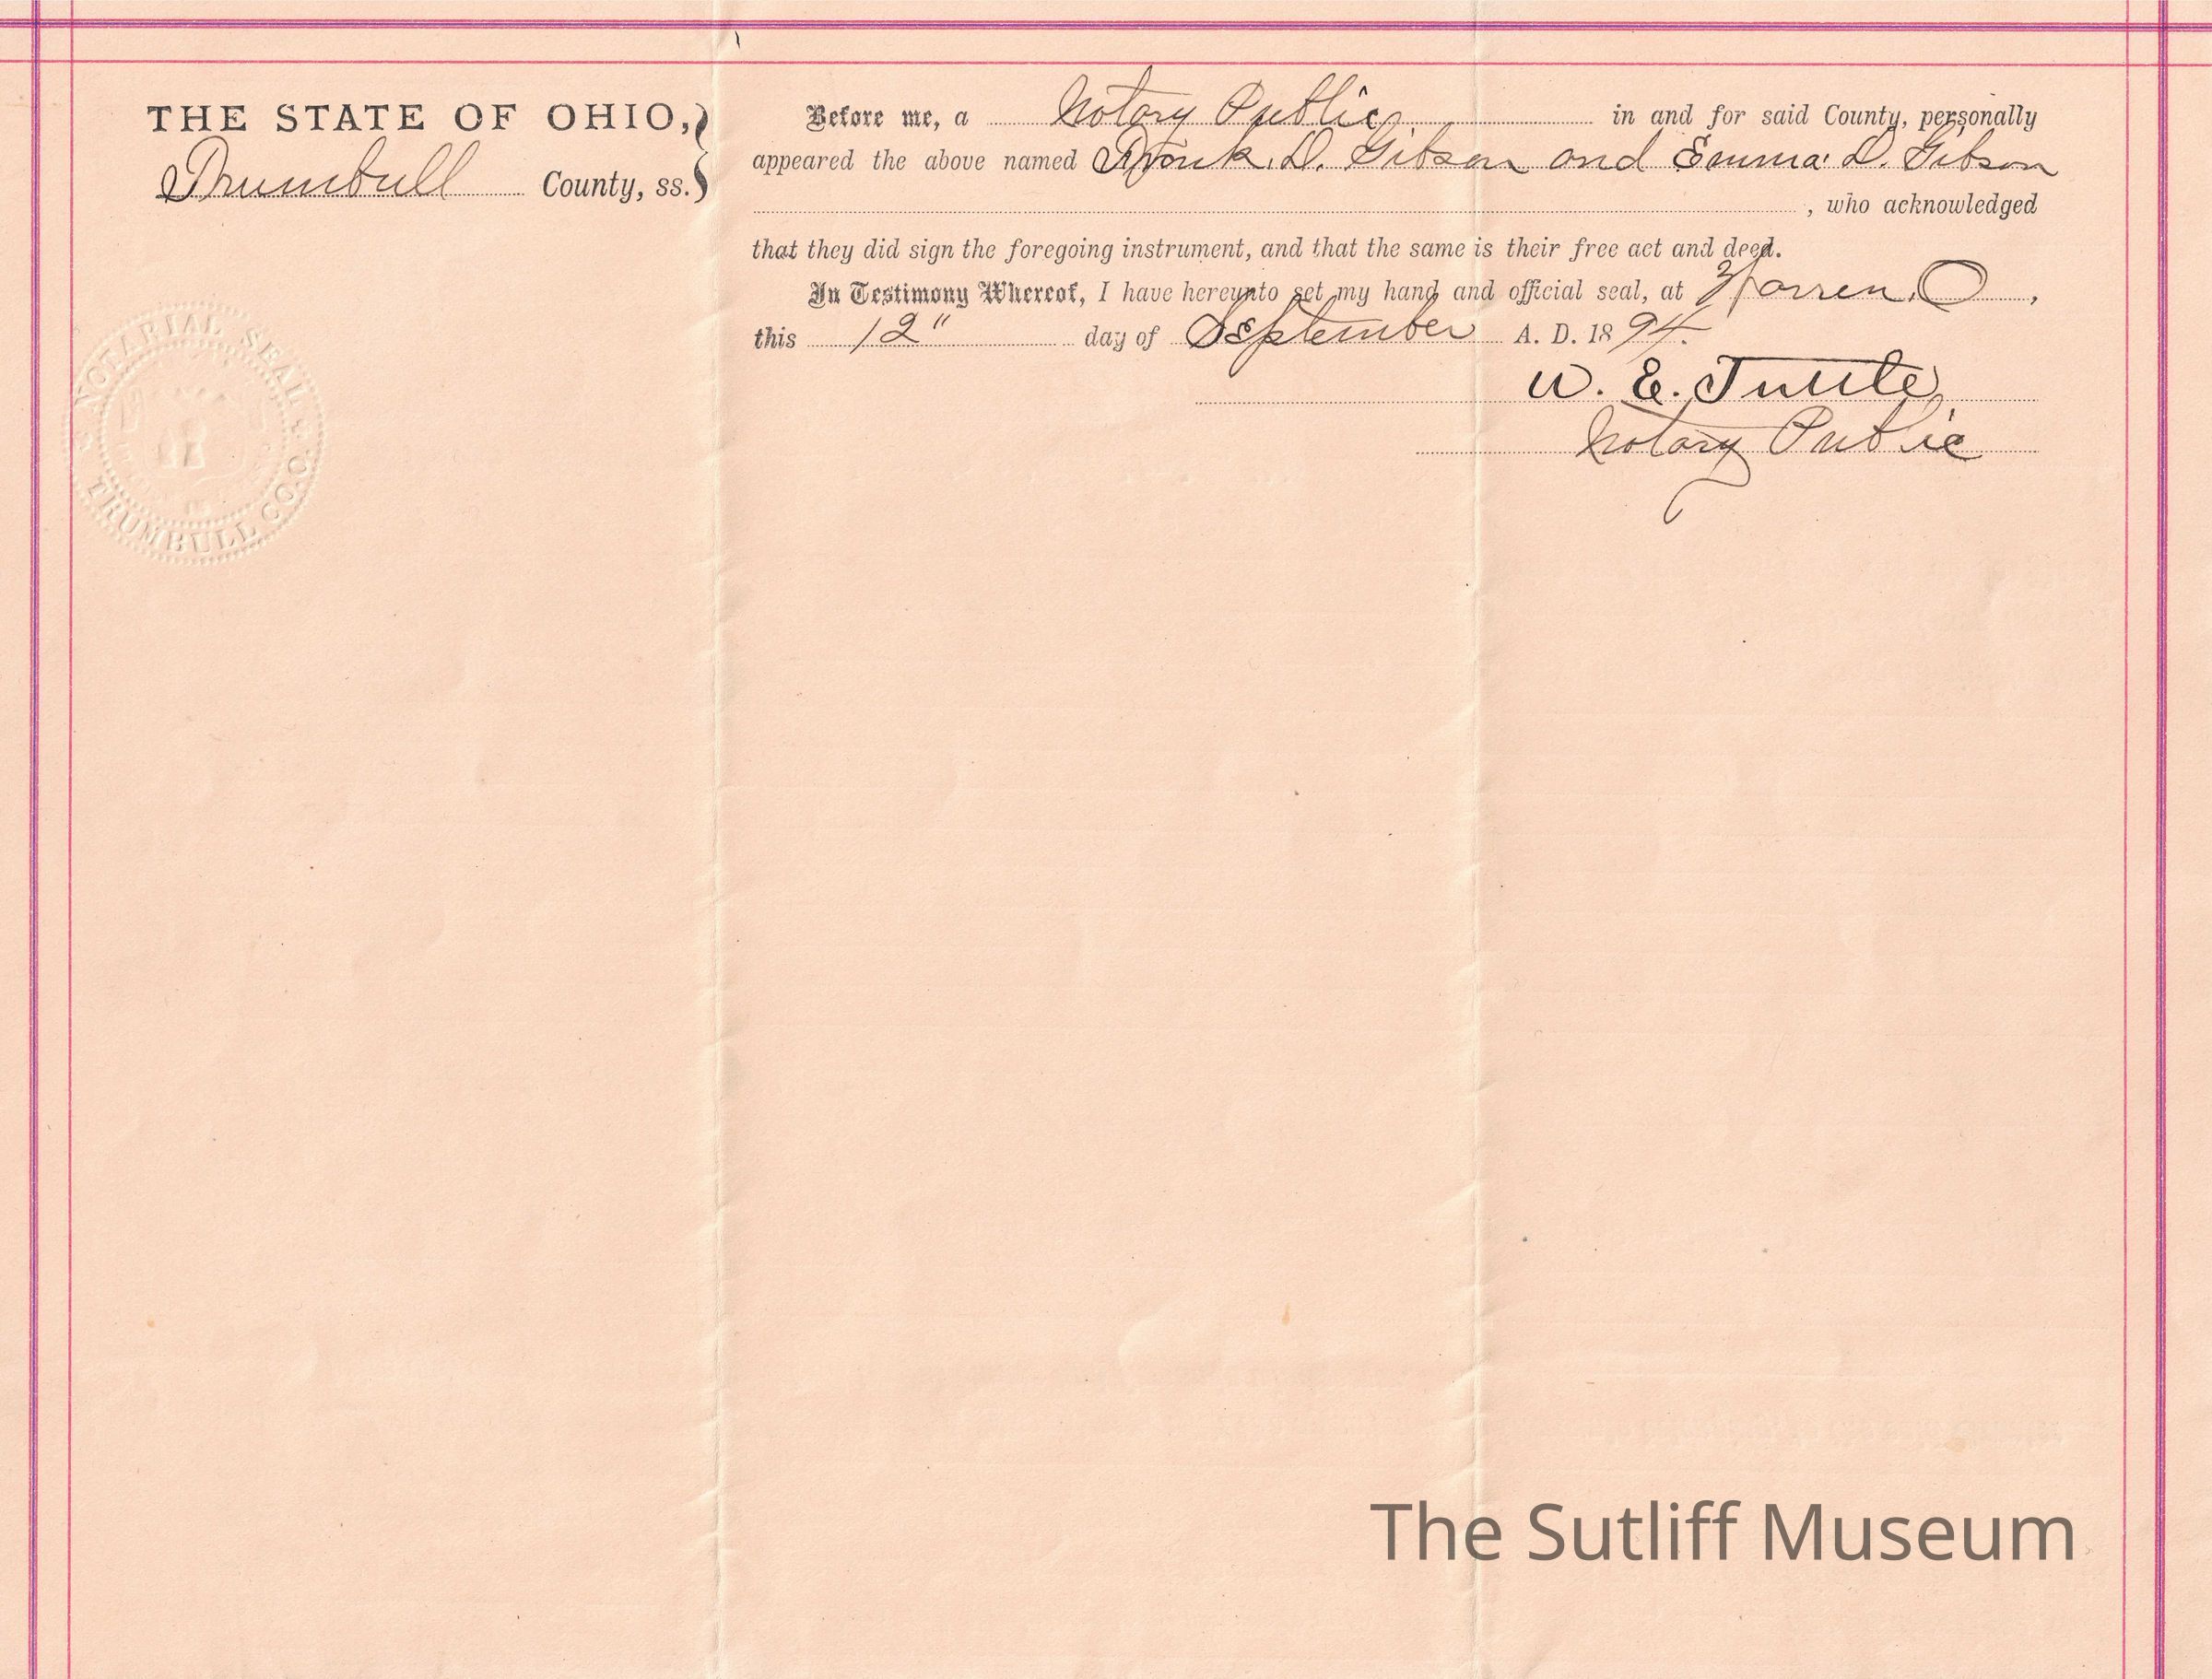 THE STATE OF OHIO,
Trumbull County, ss.
Before me, a Notary Public in and for said County, personally
appeared the above named Frank. D. Gibson and Emma D. Gibson
, who acknowledged
that they did sign the foregoing instrument, and that the same is their free act and deed.
In Testimony Whereof, I have hereunto set my hand and official seal, at Warren, O,
this 12" day of September A. D. 1894.
W. E. Tuttle
Notary Public
NOTARIAL SEAL
TRUMBULL CO. O.
The Sutliff Museum